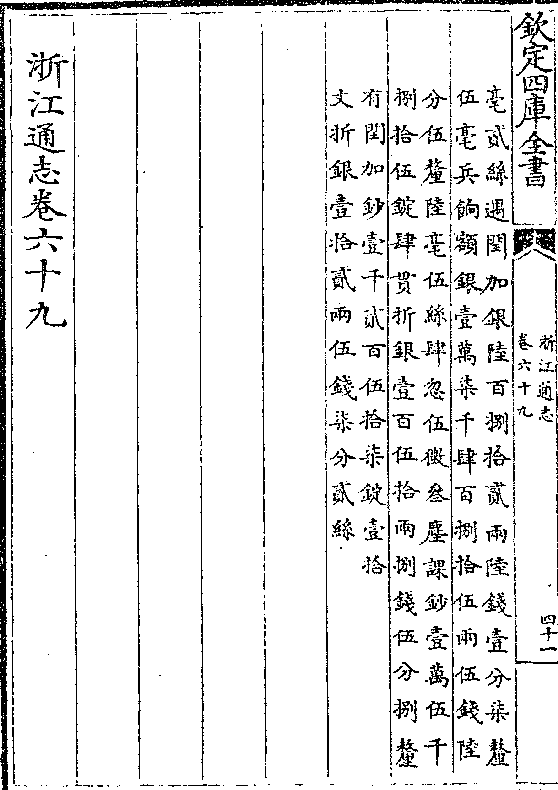 欽定四庫全書
浙江通志
卷六十九
四十一
毫貳絲遇閏加銀陸百捌拾貳兩陸錢壹分柒釐
伍毫兵餉額銀壹萬柒千肆百捌拾伍兩伍錢陸
分伍釐陸毫伍絲肆忽伍微叁塵課鈔壹萬伍千
捌拾伍錠肆貫折銀壹百伍拾兩捌錢伍分捌釐
有閏加鈔壹千貳百伍拾柒錠壹拾
文折銀壹拾貳兩伍錢柒分貳絲
浙江通志卷六十九